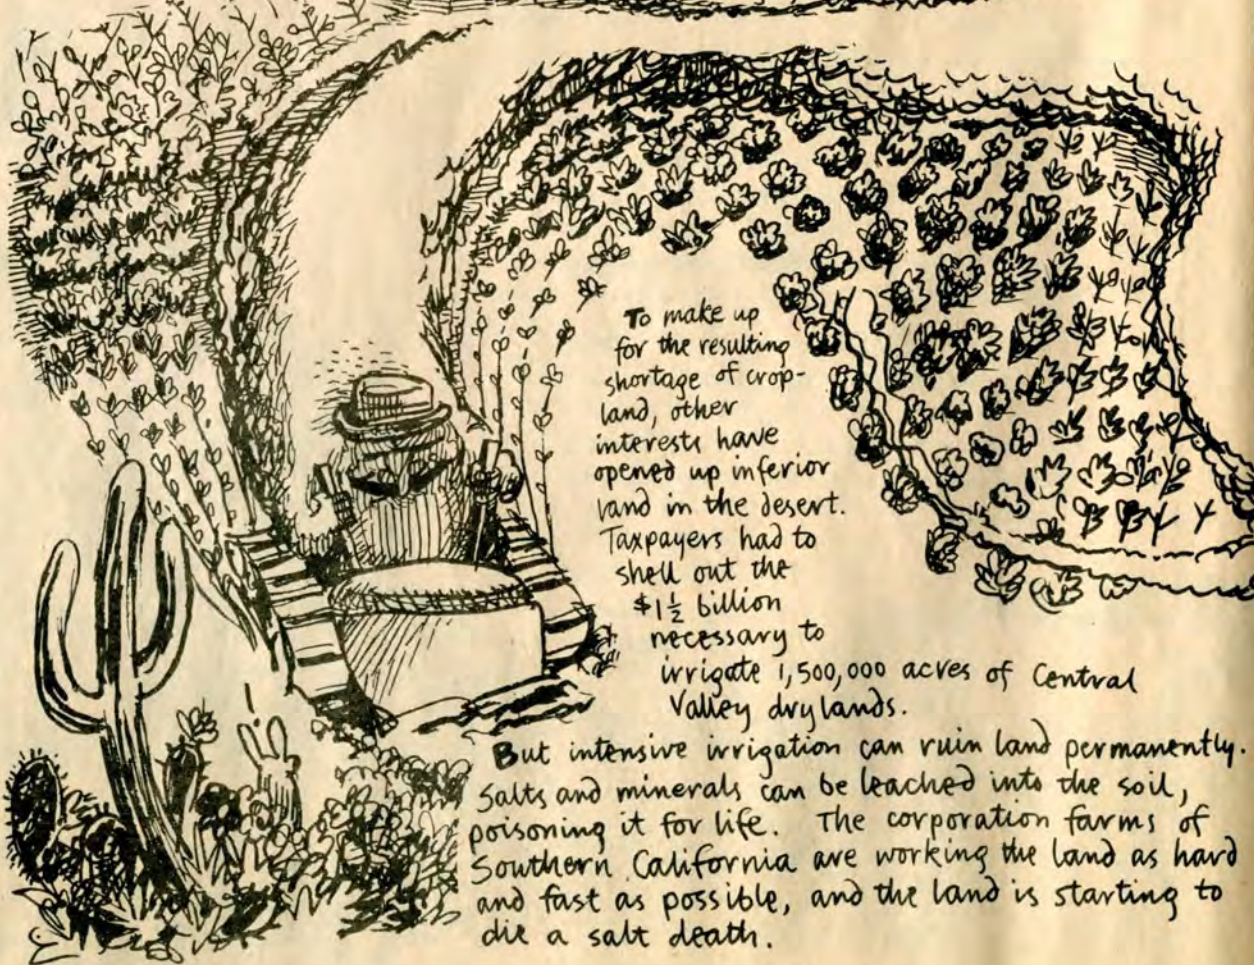 To make up
for the resulting
shortage of crop-
land, other
interests have
opened up inferior
land in the desert.
Taxpayers had to
shell out the
$1½ billion
necessary to
irrigate 1,500,000 acres of Central
Valley drylands.
But intensive irrigation can ruin land permanently.
Salts and minerals can be leached into the soil,
poisoning it for life. The corporation farms of
Southern California are working the land as hard
and fast as possible, and the land is starting to
die a salt death.